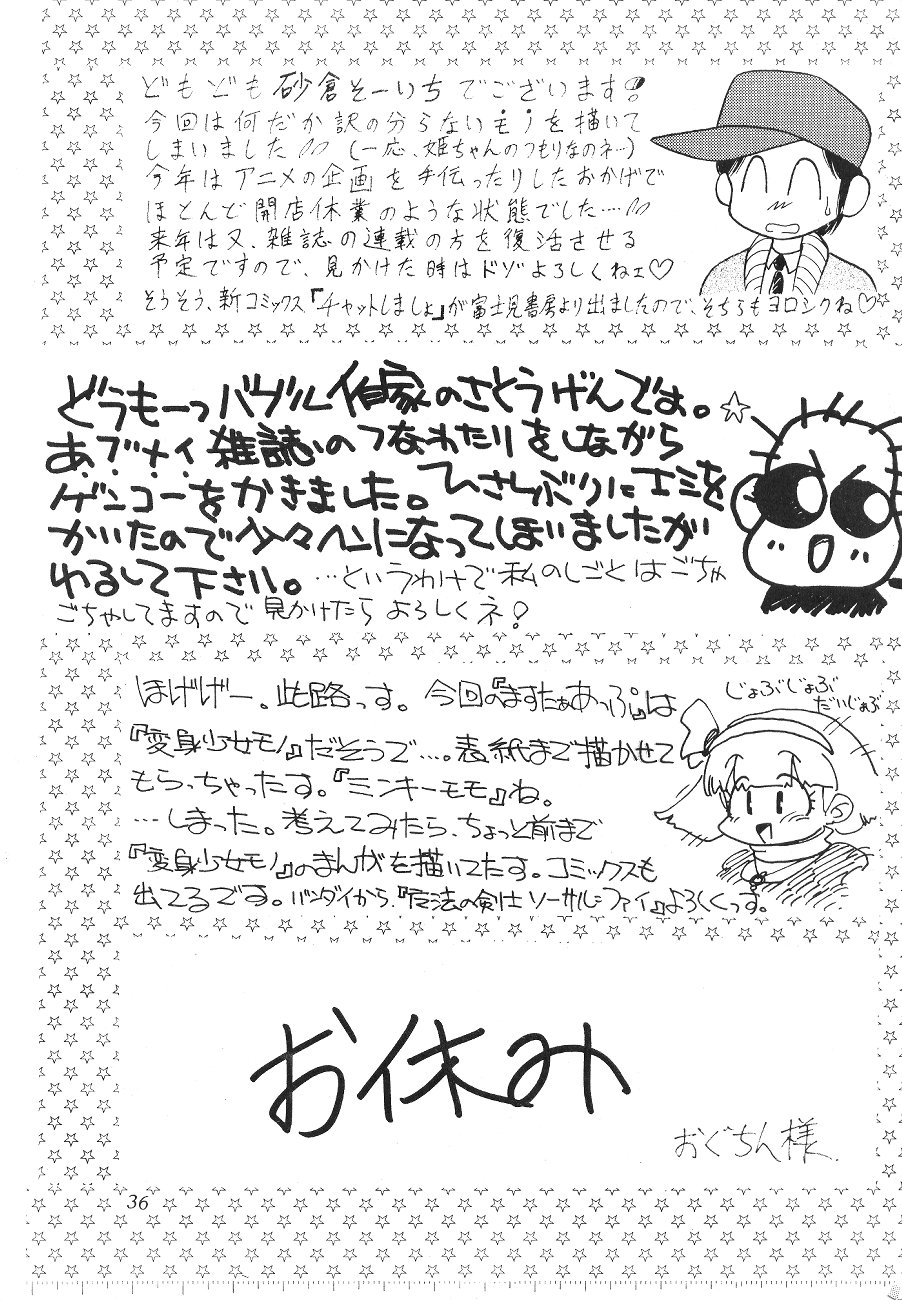 どもども砂倉そーいちでございます!
今回は何だか訳の分らないモノを描いて
しまいました (一応、姫ちゃんのつもりなのネ…)
今年はアニメの企画を手伝ったりしたおかげで
ほとんど開店休業のような状態でした…
来年は又、雑誌の連載の方を復活させる
予定ですので、見かけた時はドゾよろしくねェ♡
そうそう、新コミックス『チャットしましょ』が富士見書房より出ましたので、そちらもヨロシクね♡
どうもーっバブル作家のさとうげんです。☆
あ.ブ.ナ.イ雑誌のつなわたりをしながら
ゲンコーをかきました。ひさしぶりにエミを
かいたので少々ヘンになってしまいましたが
わるして下さい。…というわけで私のしごとはごちゃ
ごちゃしてますので見かけたらよろしくネ!
ほげげー。此路っす。今回の『ますたぁあっぷ』は
じょぶじょぶ
だいじょぶ
『変身少女モノ』だそうで…。表紙まで描かせて
もらっちゃったす。『ミンキーモモ』ね。
…しまった。考えてみたら、ちょっと前まで
『変身少女モノ』のまんがを描いてたす。コミックスも
出てるです。バンダイから『魔法の剣士ソーサル=ファイ』よろしくっす。
お休み
おぐちん様
36